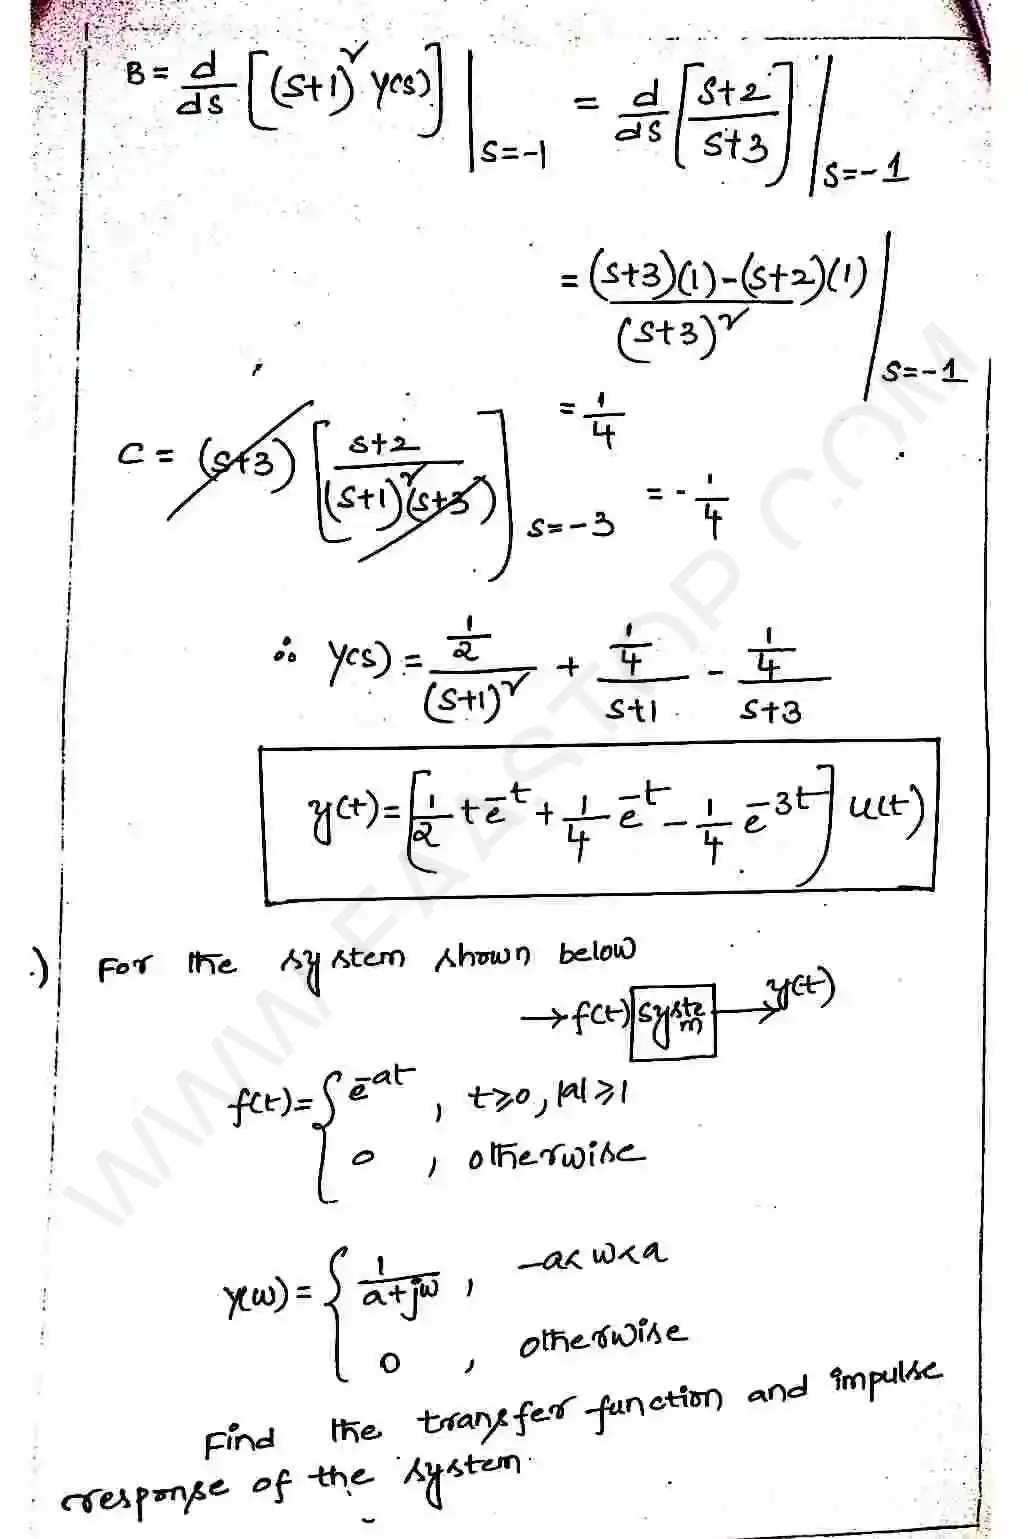 B = d/ds [(s+1)² Y(s)] |s=-1 = d/ds [s+2/s+3] |s=-1
= (s+3)(1)-(s+2)(1)/(s+3)² |s=-1
= 1/4
C = (s+3) [s+2/(s+1)²(s+3)] s=-3 = -1/4
∴ Y(s) = 1/2/(s+1)² + 1/4/s+1 - 1/4/s+3
y(t) = [1/2 te^-t + 1/4 e^-t - 1/4 e^-3t] u(t)
.) For the system shown below
→ f(t) system → y(t)
f(t) = { e^-at , t≥0, |a|≥1
0 , otherwise
Y(w) = { 1/a+jw , -a<w<a
0 , otherwise
Find the transfer function and impulse
response of the system.
WWW.EAASTOP.COM